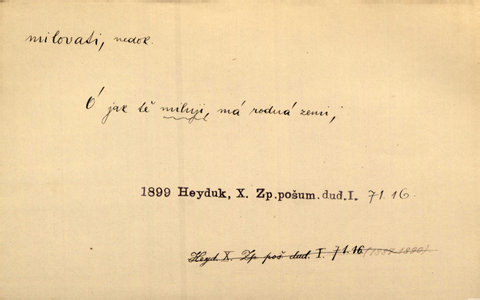 milovati, nedok.
Ó jak tě miluji, má rodná zemi,
1899 Heyduk, X. Zp.pošum.dud.I. 71.16.
Heyd X. Zp poš dud. I. 71.16